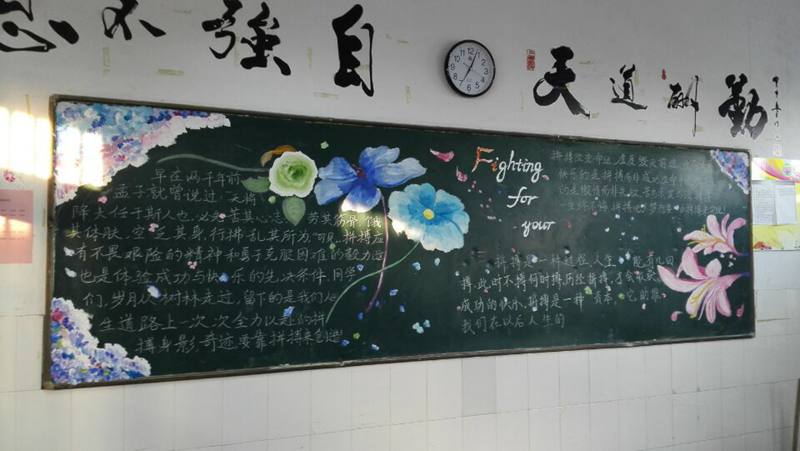 自強不息
天道酬勤
早在两千年前
孟子就曾说过"天将
降大任于斯人也,必先苦其心志,劳其筋骨,饿
其体肤,空乏其身,行拂乱其所为"可见,拼搏应
有不畏艰险的精神和勇于克服困难的毅力,
也是体验成功与快乐的先决条件.同学
们,岁月从树林走过,留下的是我们人
生道路上一次次全力以赴的拼
搏身影.奇迹要靠拼搏来创造!
Fighting
for
your
拼搏改变命运
拼搏是一种过程,人生能有几回
搏,此时不搏何时搏历经拼搏,才会收获
成功的快乐,拼搏是一种资本,它助推
我们在以后人生的